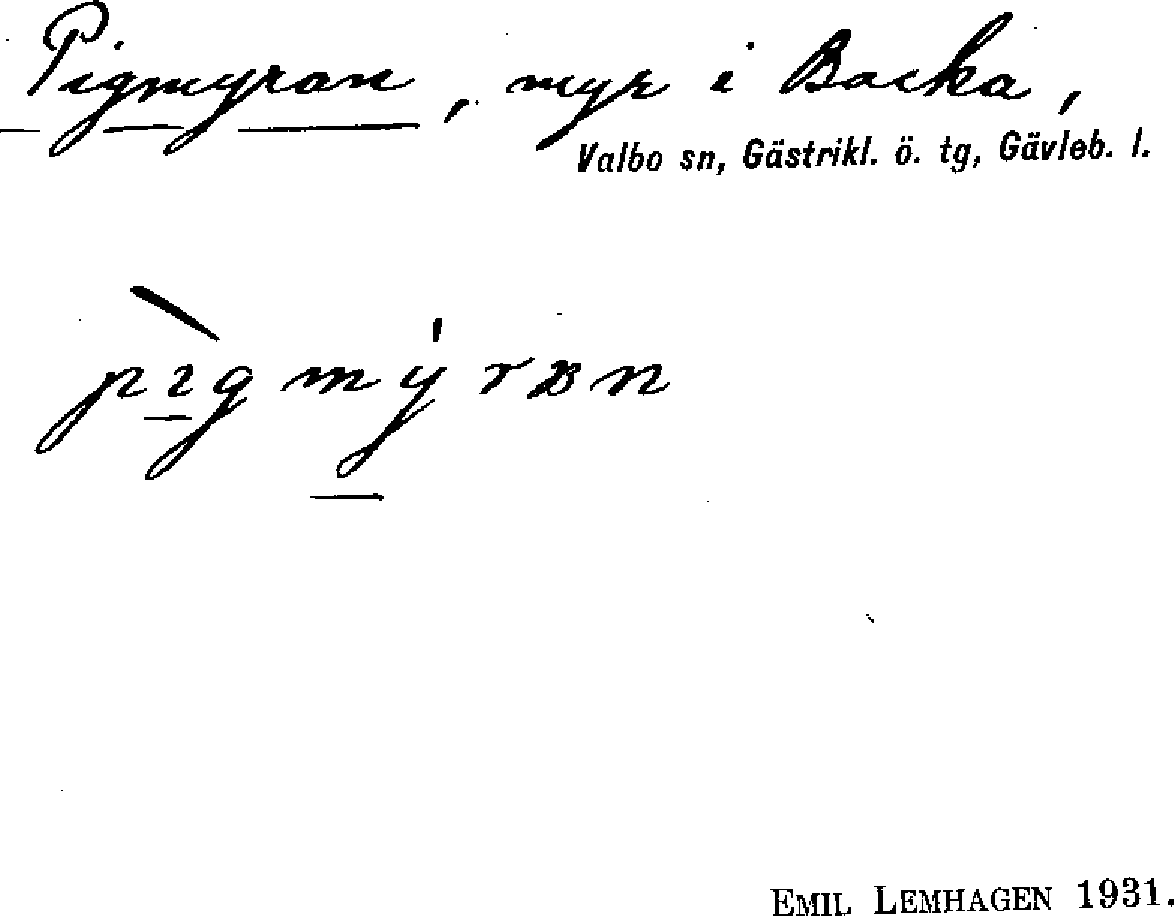 Pigmyran, myr i Backa,
Valbo sn, Gästrikl. ö. tg, Gävleb. l.
pɪg mý rʙn
EMIL LEMHAGEN 1931.